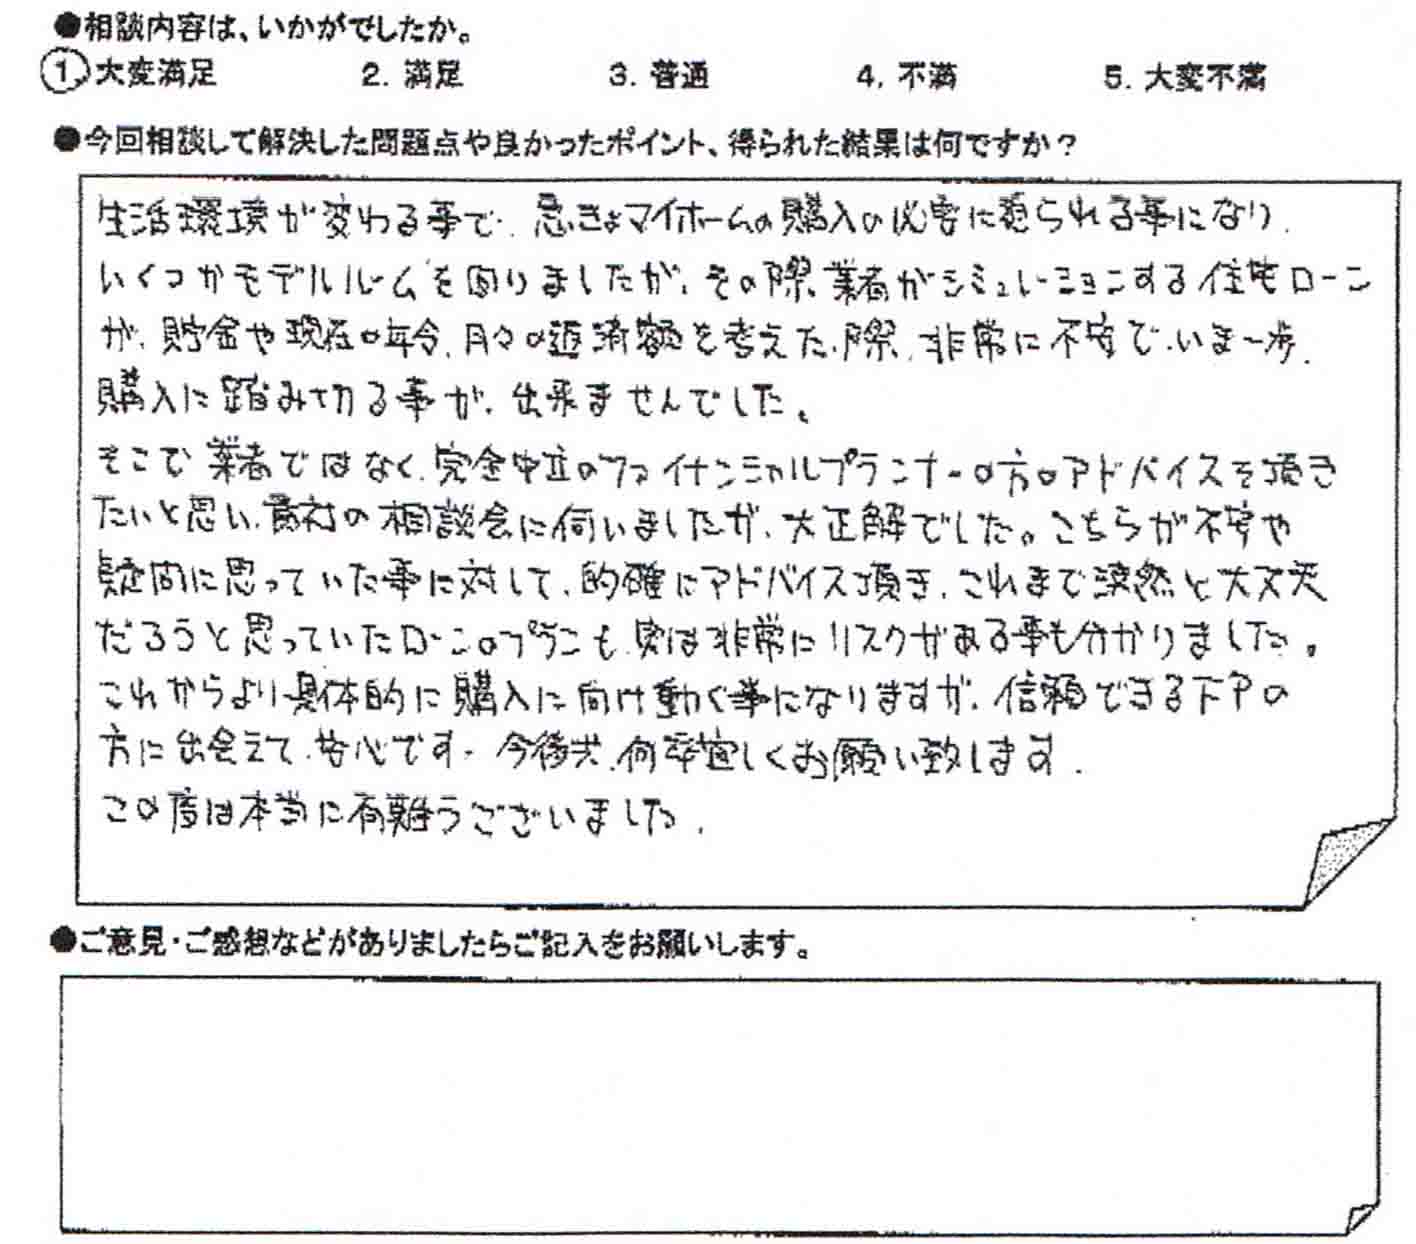 ●相談内容は、いかがでしたか。
1. 大変満足 2. 満足 3. 普通 4. 不満 5. 大変不満
●今回相談して解決した問題点や良かったポイント、得られた結果は何ですか?
生活環境が変わる事で、急きょマイホームの購入の必要に迫られる事になり、
いくつかモデルルームを回りましたが、その際、業者がシミュレーションする住宅ローン
が、貯金や現在の年令、月々の返済額を考えた際、非常に不安で、いま一歩、
購入に踏み切る事が、出来ませんでした。
そこで業者ではなく、完全中立のファイナンシャルプランナーの方のアドバイスを頂き
たいと思い、貴社の相談会に伺いましたが、大正解でした。こちらが不安や
疑問に思っていた事に対して、的確にアドバイス頂き、これまで漠然と大丈夫
だろうと思っていたローンのプランも、実は非常にリスクがある事も分かりました。
これからより具体的に購入に向け動く事になりますが、信頼できるFPの
方に出会えて、安心です。今後共、何卒宜しくお願い致します。
この度は本当に有難うございました。
●ご意見・ご感想などがありましたらご記入をお願いします。